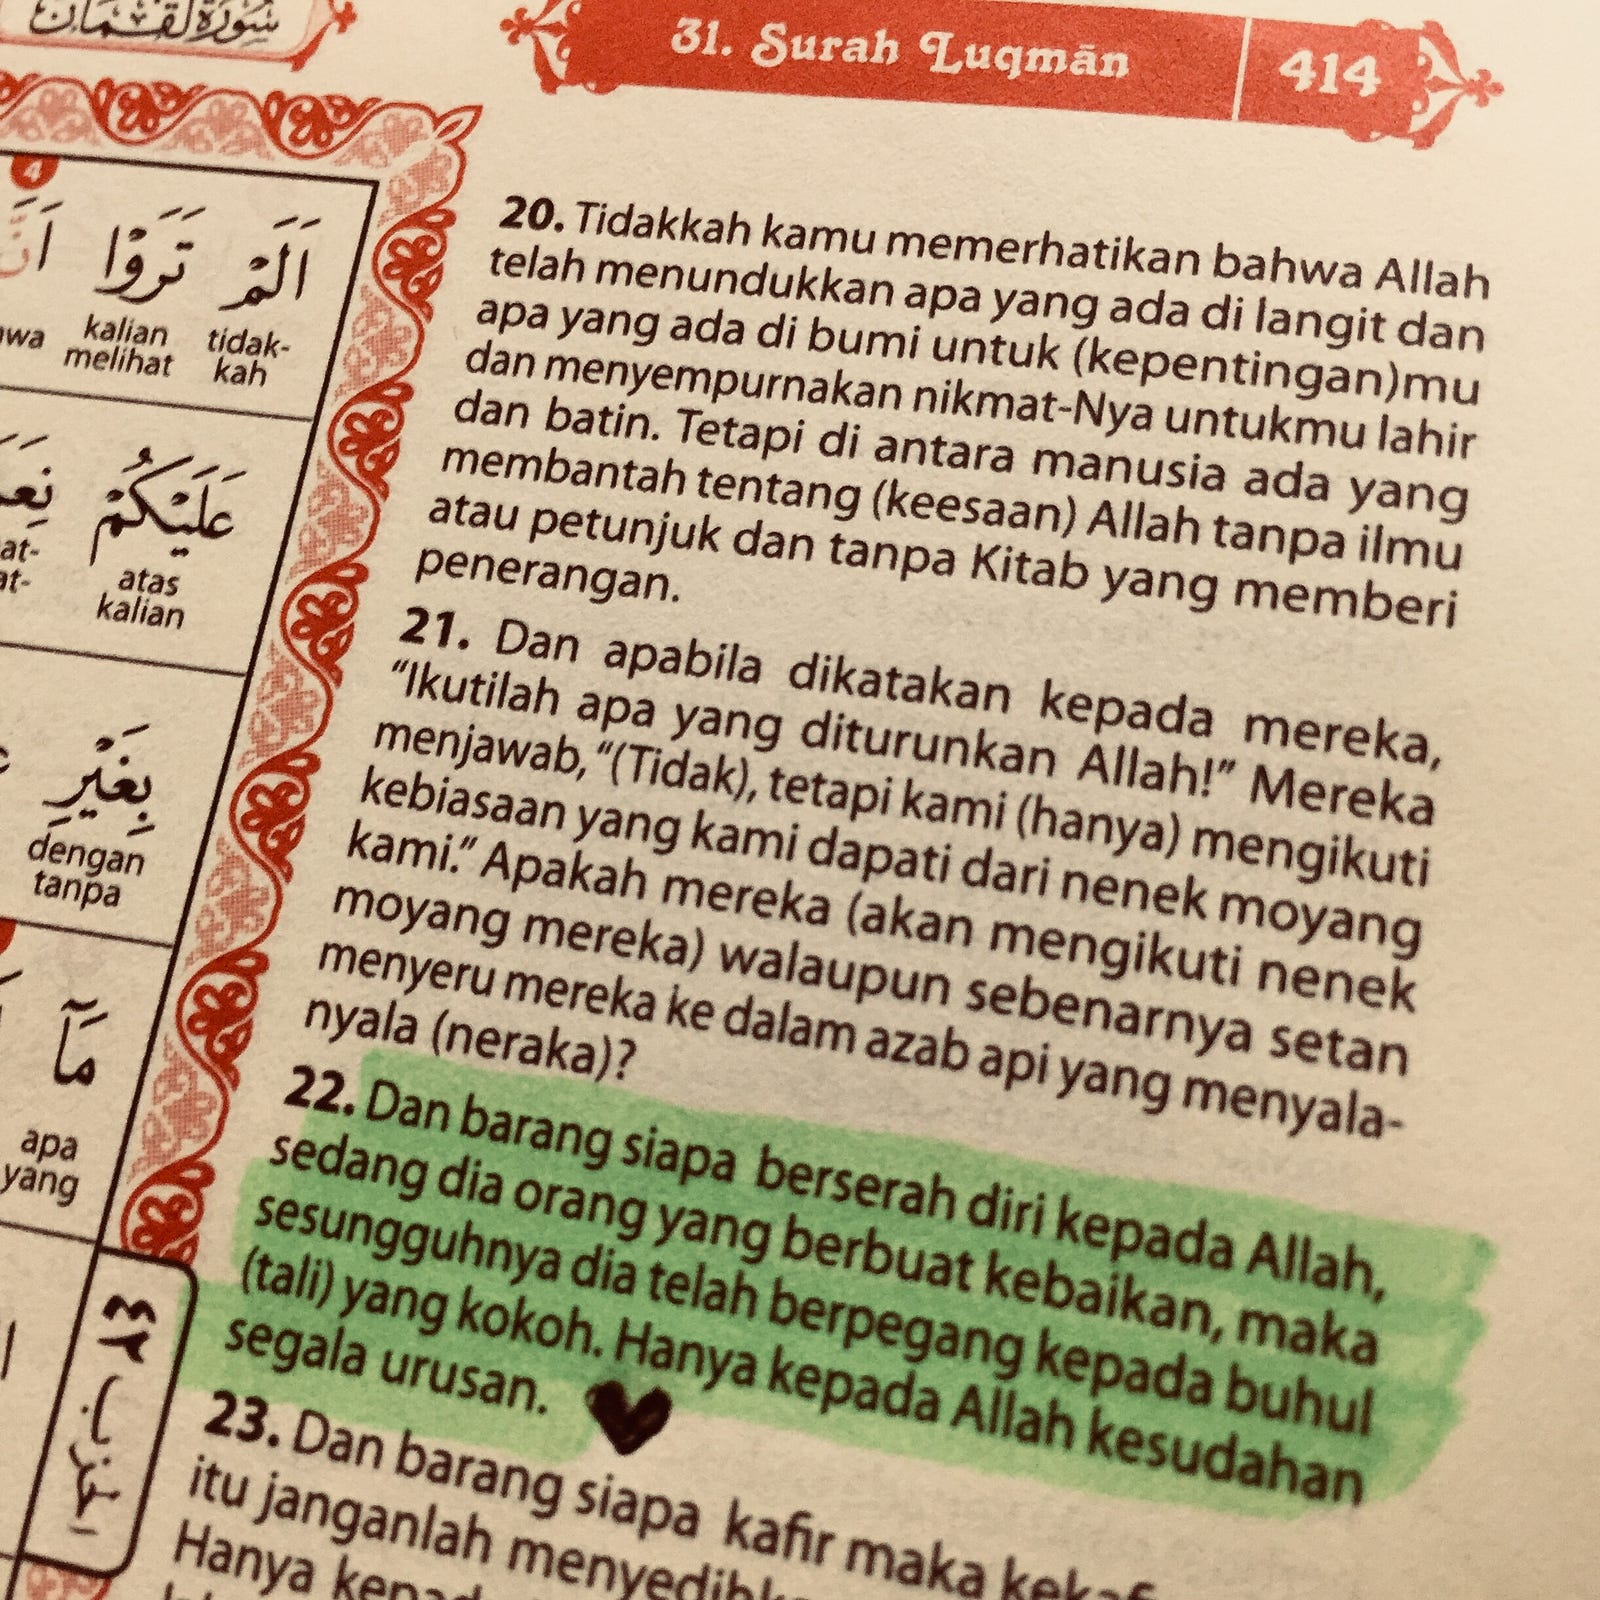 سورة لقمان
31. Surah Luqmān 414
4
اَلَمْ تَرَوْا
tidak-
kah
kalian
melihat
عَلَيْكُمْ
atas
kalian
بِغَيْرِ
dengan
tanpa
مَآ
apa
yang
20. Tidakkah kamu memerhatikan bahwa Allah
telah menundukkan apa yang ada di langit dan
apa yang ada di bumi untuk (kepentingan)mu
dan menyempurnakan nikmat-Nya untukmu lahir
dan batin. Tetapi di antara manusia ada yang
membantah tentang (keesaan) Allah tanpa ilmu
atau petunjuk dan tanpa Kitab yang memberi
penerangan.
21. Dan apabila dikatakan kepada mereka,
“Ikutilah apa yang diturunkan Allah!” Mereka
menjawab, “(Tidak), tetapi kami (hanya) mengikuti
kebiasaan yang kami dapati dari nenek moyang
kami.” Apakah mereka (akan mengikuti nenek
moyang mereka) walaupun sebenarnya setan
menyeru mereka ke dalam azab api yang menyala-
nyala (neraka)?
22. Dan barang siapa berserah diri kepada Allah,
sedang dia orang yang berbuat kebaikan, maka
sesungguhnya dia telah berpegang kepada buhul
(tali) yang kokoh. Hanya kepada Allah kesudahan
segala urusan.
23. Dan barang siapa kafir maka
itu janganlah
Hanya